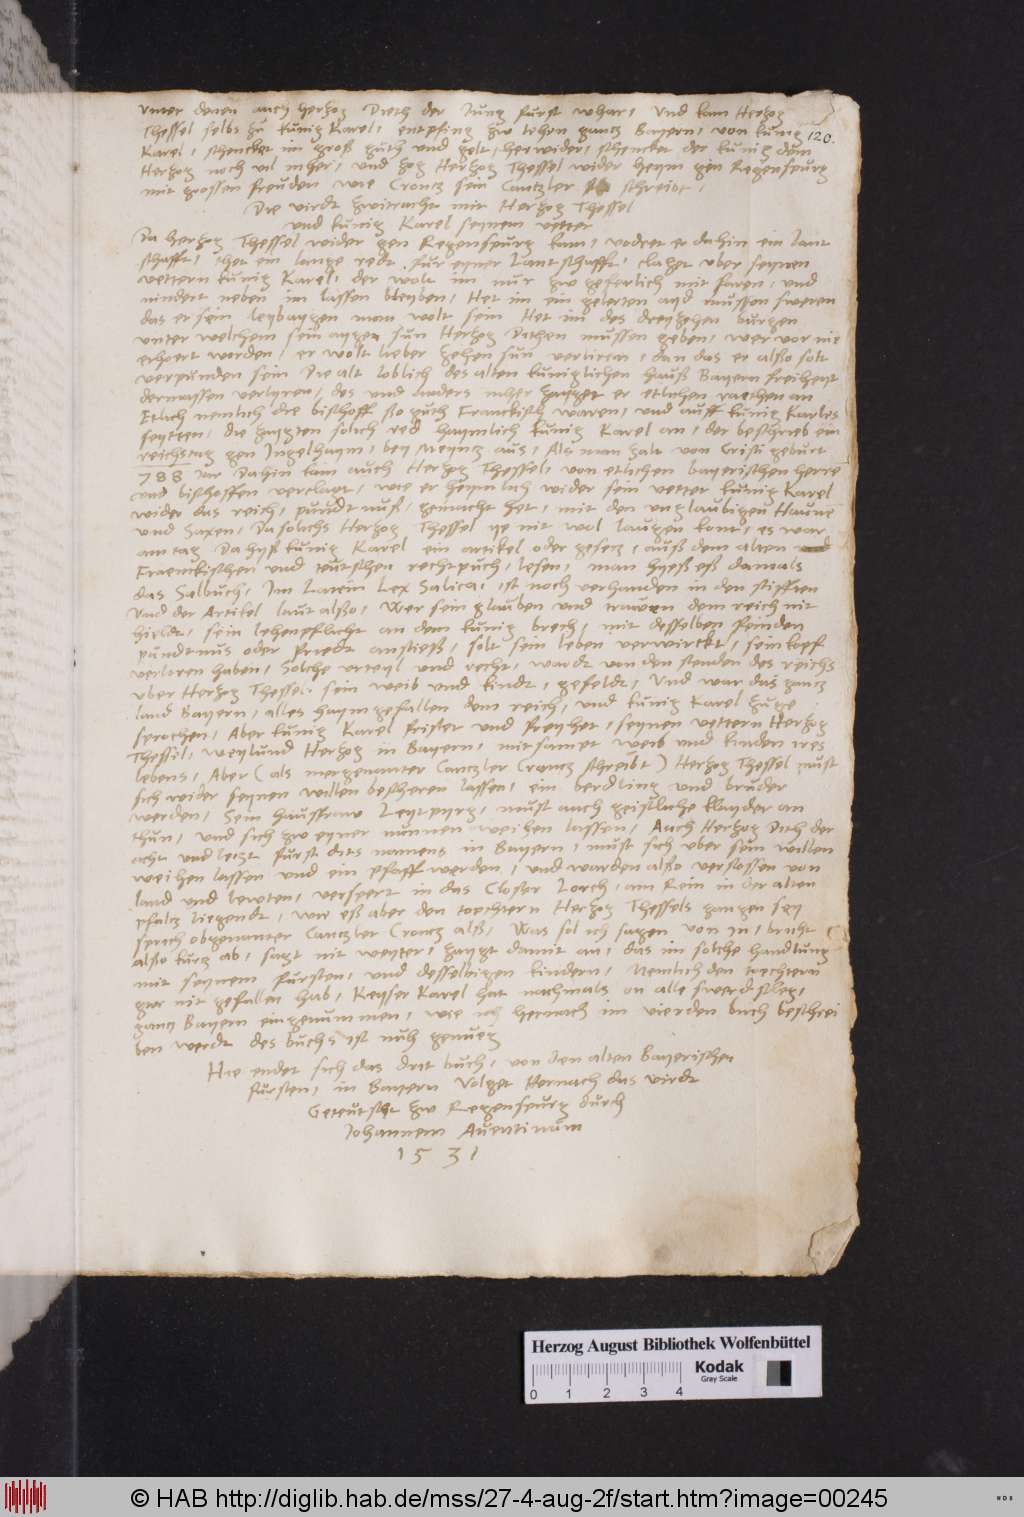 unter denen auch herzog Dieth der Jung furst whar, Und kam Herzog
Thessel selbs zu kunig Karel, entpfing zw lehen gantz Bayern, von kunig
120.
Karel, schencket im groß guth und gelt, herwider, schencket der kunig dem
Herzog noch vil mher, und zog Herzog Thessel wider heym gen Regenspurg
mit grossen freuden wie Crontz sein Cantzler schreibt,
Die virdt zwitracht mit Herzog Thessel
und kunig Karel seynem vetter
Da herzog Thessel wider gen Regenspurg kam, vodret er dahin ein lant
schafft, thet ein lange redt fur eyner Lantschafft, claget uber seynen
vettern kunig Karel, der wolt im nur zw geferlich mit faren, und
nindert neben im lassen bleyben, Het im ein gelerten ayd mussen sweren
das er sein leybaygen man wolt sein Het im des dreyzehen burgen
unter welchem sein aygen sun Herzog Dithen mussen geben, wer vor nie
erhoert worden, er wolt lieber zehen sun verliren, dan das er alßo solt
verpunden sein Die alt loblich des alten kuniglichen hauß Bayern freiheyt
dermassen verlyren, des und anders mher zayget er etlichen raethen an
Etlich nemlich die bischoff ßo guth Franckisch waren, und auff kunig Karles
seytten, die zaygten solich red haymlich kunig Karel an, der beschrieb ein
reichstag gen Ingelhaym, bey Meyntz aus, Als man zalt von Cristi geburt
788 Jar Dahin kam auch Herzog Thessel, von etlichen bayerischen herre
und bischoffen verclagt, wie er heymlich wider sein vetter kunig Karel
wider das reich, pundtnuß, gemacht het, mit den unglaubigen Haune
und Saxen, Da solichs Herzog Thessel ye nit wol laugen kont, es war
am tag Da hyß kunig Karel ein artikel oder gesetz, auß dem alten
Fraenckischen und teutschen rechtpuch, lesen, man hyeß eß damals
das Salbuch, Im Latein Lex Salica, ist noch verhanden in den stifften
Und der Artikel laut alßo, Wer sein glauben und trawen dem reich nit
hieldt, sein lehenpflicht an dem kunig brech, mit desselben feinden
pundtnus oder friedt anstieß, solt sein leben verwirckt, sein kopf
verloren haben, Solche urteyl und recht, wardt von den stenden des reichs
uber Herzog Thessel, sein weib und kindt, gefeldt, Und war das gantz
land Bayern, alles haym gefallen dem reich, und kunig Karel zuge
sprochen, Aber kunig Karel fristet und freyhet, seynen vettern Herzog
Thessil, weylund Herzog in Bayern, mitsampt weib und kinden ires
lebens, Aber (als mergenanter Cantzler Crantz schreibt) Herzog Thessel must
sich wider seynen willen bescheren lassen, ein berdling und bruder
werden, Sein haussfraw Leytpyrg, must auch geistliche klayder an
thun, und sich zw eyner nunnen weihen lassen, Auch Herzog Dith der
acht und letzt furst dits namens in Bayern, must sich uber sein willen
weihen lassen und ein pfaff werden, und warden alßo verstossen von
land und lewten, versperrt in das Closter Lorch, am Rein in der alten
pfaltz liegendt, wie eß aber den toechtern Herzog Thessels gangen sey
sprich obgenanter Cantzler Crontz alß, Was sol ich sagen von in, bricht
alßo kurtz ab, sagt nit weyter, zaygt damit an, das im solche handlung
mit seynem fursten, und desselbigen kindern, Nemlich den toechtern
gar nit gefallen hab, Keyser Karel hat nachmals on alle swerdschleg,
gantz Bayern eingenummen, wie ich hernach im vierden buch beschrei
ben werdt des buchs ist nuh genueg
Hie endet sich das drit buch, von den alten Bayerischen
fursten, in Bayern Volget Hernach das virdt
Geteutscht zw Regenspurg durch
Johannem Aventinum
1531
Herzog August Bibliothek Wolfenbüttel
Kodak
Gray Scale
0 1 2 3 4
© HAB http://diglib.hab.de/mss/27-4-aug-2f/start.htm?image=00245